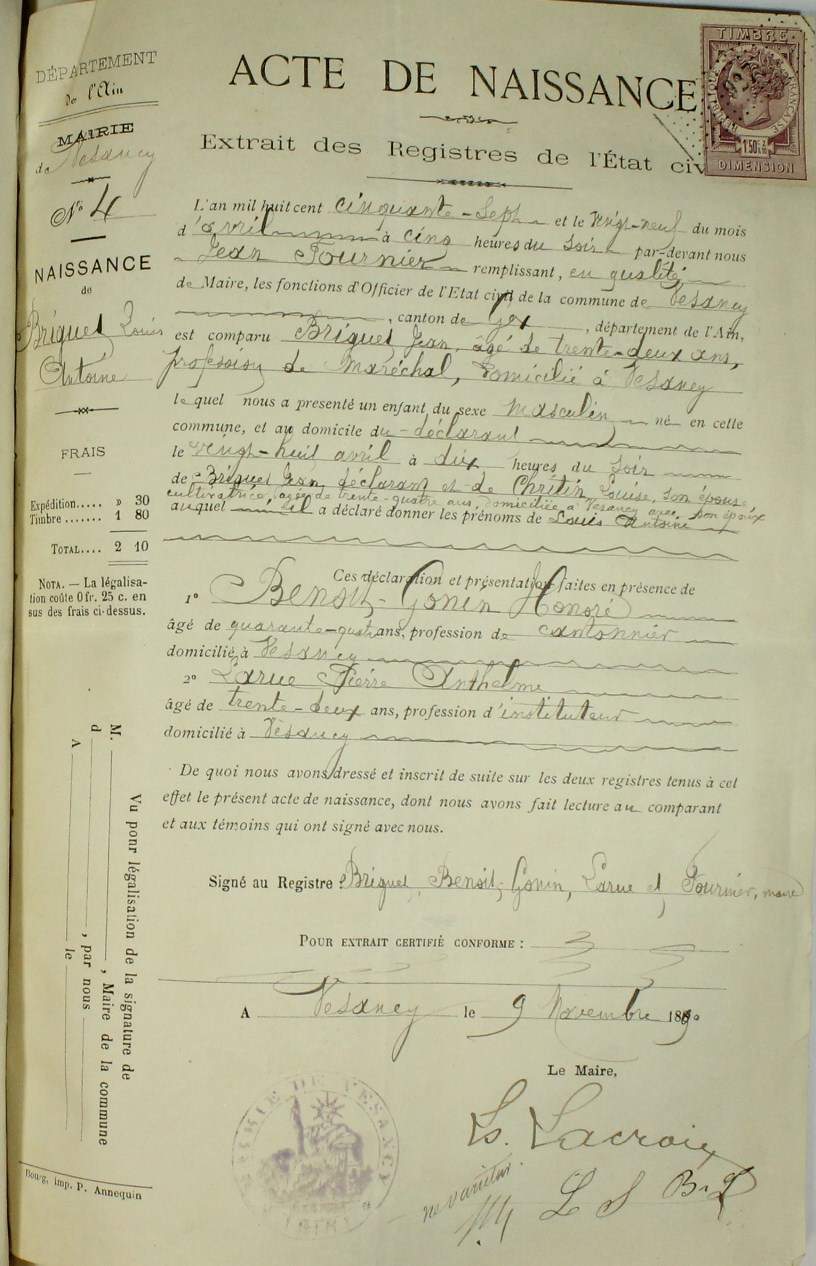 DÉPARTEMENT
de l'Ain
MAIRIE
de Vesancy
N° 4
NAISSANCE
de
Briquet Louis
Antoine
FRAIS
Expédition..... » 30
Timbre ....... 1 80
TOTAL.... 2 10
NOTA. — La légalisa-
tion coûte 0 fr. 25 c. en
sus des frais ci-dessus.
Vu pour légalisation de la signature de
M. , Maire de la commune
d , par nous
A le
Bourg, imp. P. Annequin
TIMBRE
RÉPUBLIQUE FRANÇAISE
1f50
DIMENSION
ACTE DE NAISSANCE
Extrait des Registres de l'État civ
L'an mil huit cent cinquante-Sept et le Vingt-neuf du mois
d'avril à cinq heures du Soir par-devant nous
Jean Fournier remplissant, en qualité
de Maire, les fonctions d'Officier de l'Etat civil de la commune de Vesancy
, canton de Gex , département de l'Ain,
est comparu Briquet Jean, âgé de trente-deux ans,
profession de Maréchal, Domicilié à Vesancy
lequel nous a presenté un enfant du sexe Masculin né en cette
commune, et au domicile du déclarant
le vingt-huit avril à dix heures du Soir
de Briquet Jean, déclarant et de Chrétin Louise, son épouse
cultivatrice, agée de trente-quatre ans, domiciliée à Vesancy avec son époux
auquel il a déclaré donner les prénoms de Louis Antoine
Ces déclaration et présentation faites en présence de
1° Benoit-Gonin Honoré
âgé de quarante-quatre ans, profession de cantonnier
domicilié à Vesancy
2° Larue Pierre Anthelme
âgé de trente-deux ans, profession d'instituteur
domicilié à Vesancy
De quoi nous avons dressé et inscrit de suite sur les deux registres tenus à cet
effet le présent acte de naissance, dont nous avons fait lecture au comparant
et aux témoins qui ont signé avec nous.
Signé au Registre : Briquet, Benoit-Gonin, Larue et Fournier, maire
POUR EXTRAIT CERTIFIÉ CONFORME :
A Vesancy le 9 Novembre 1890
Le Maire,
Ls. Lacroix
MAIRIE DE VESANCY
ne varietur
L S B. L